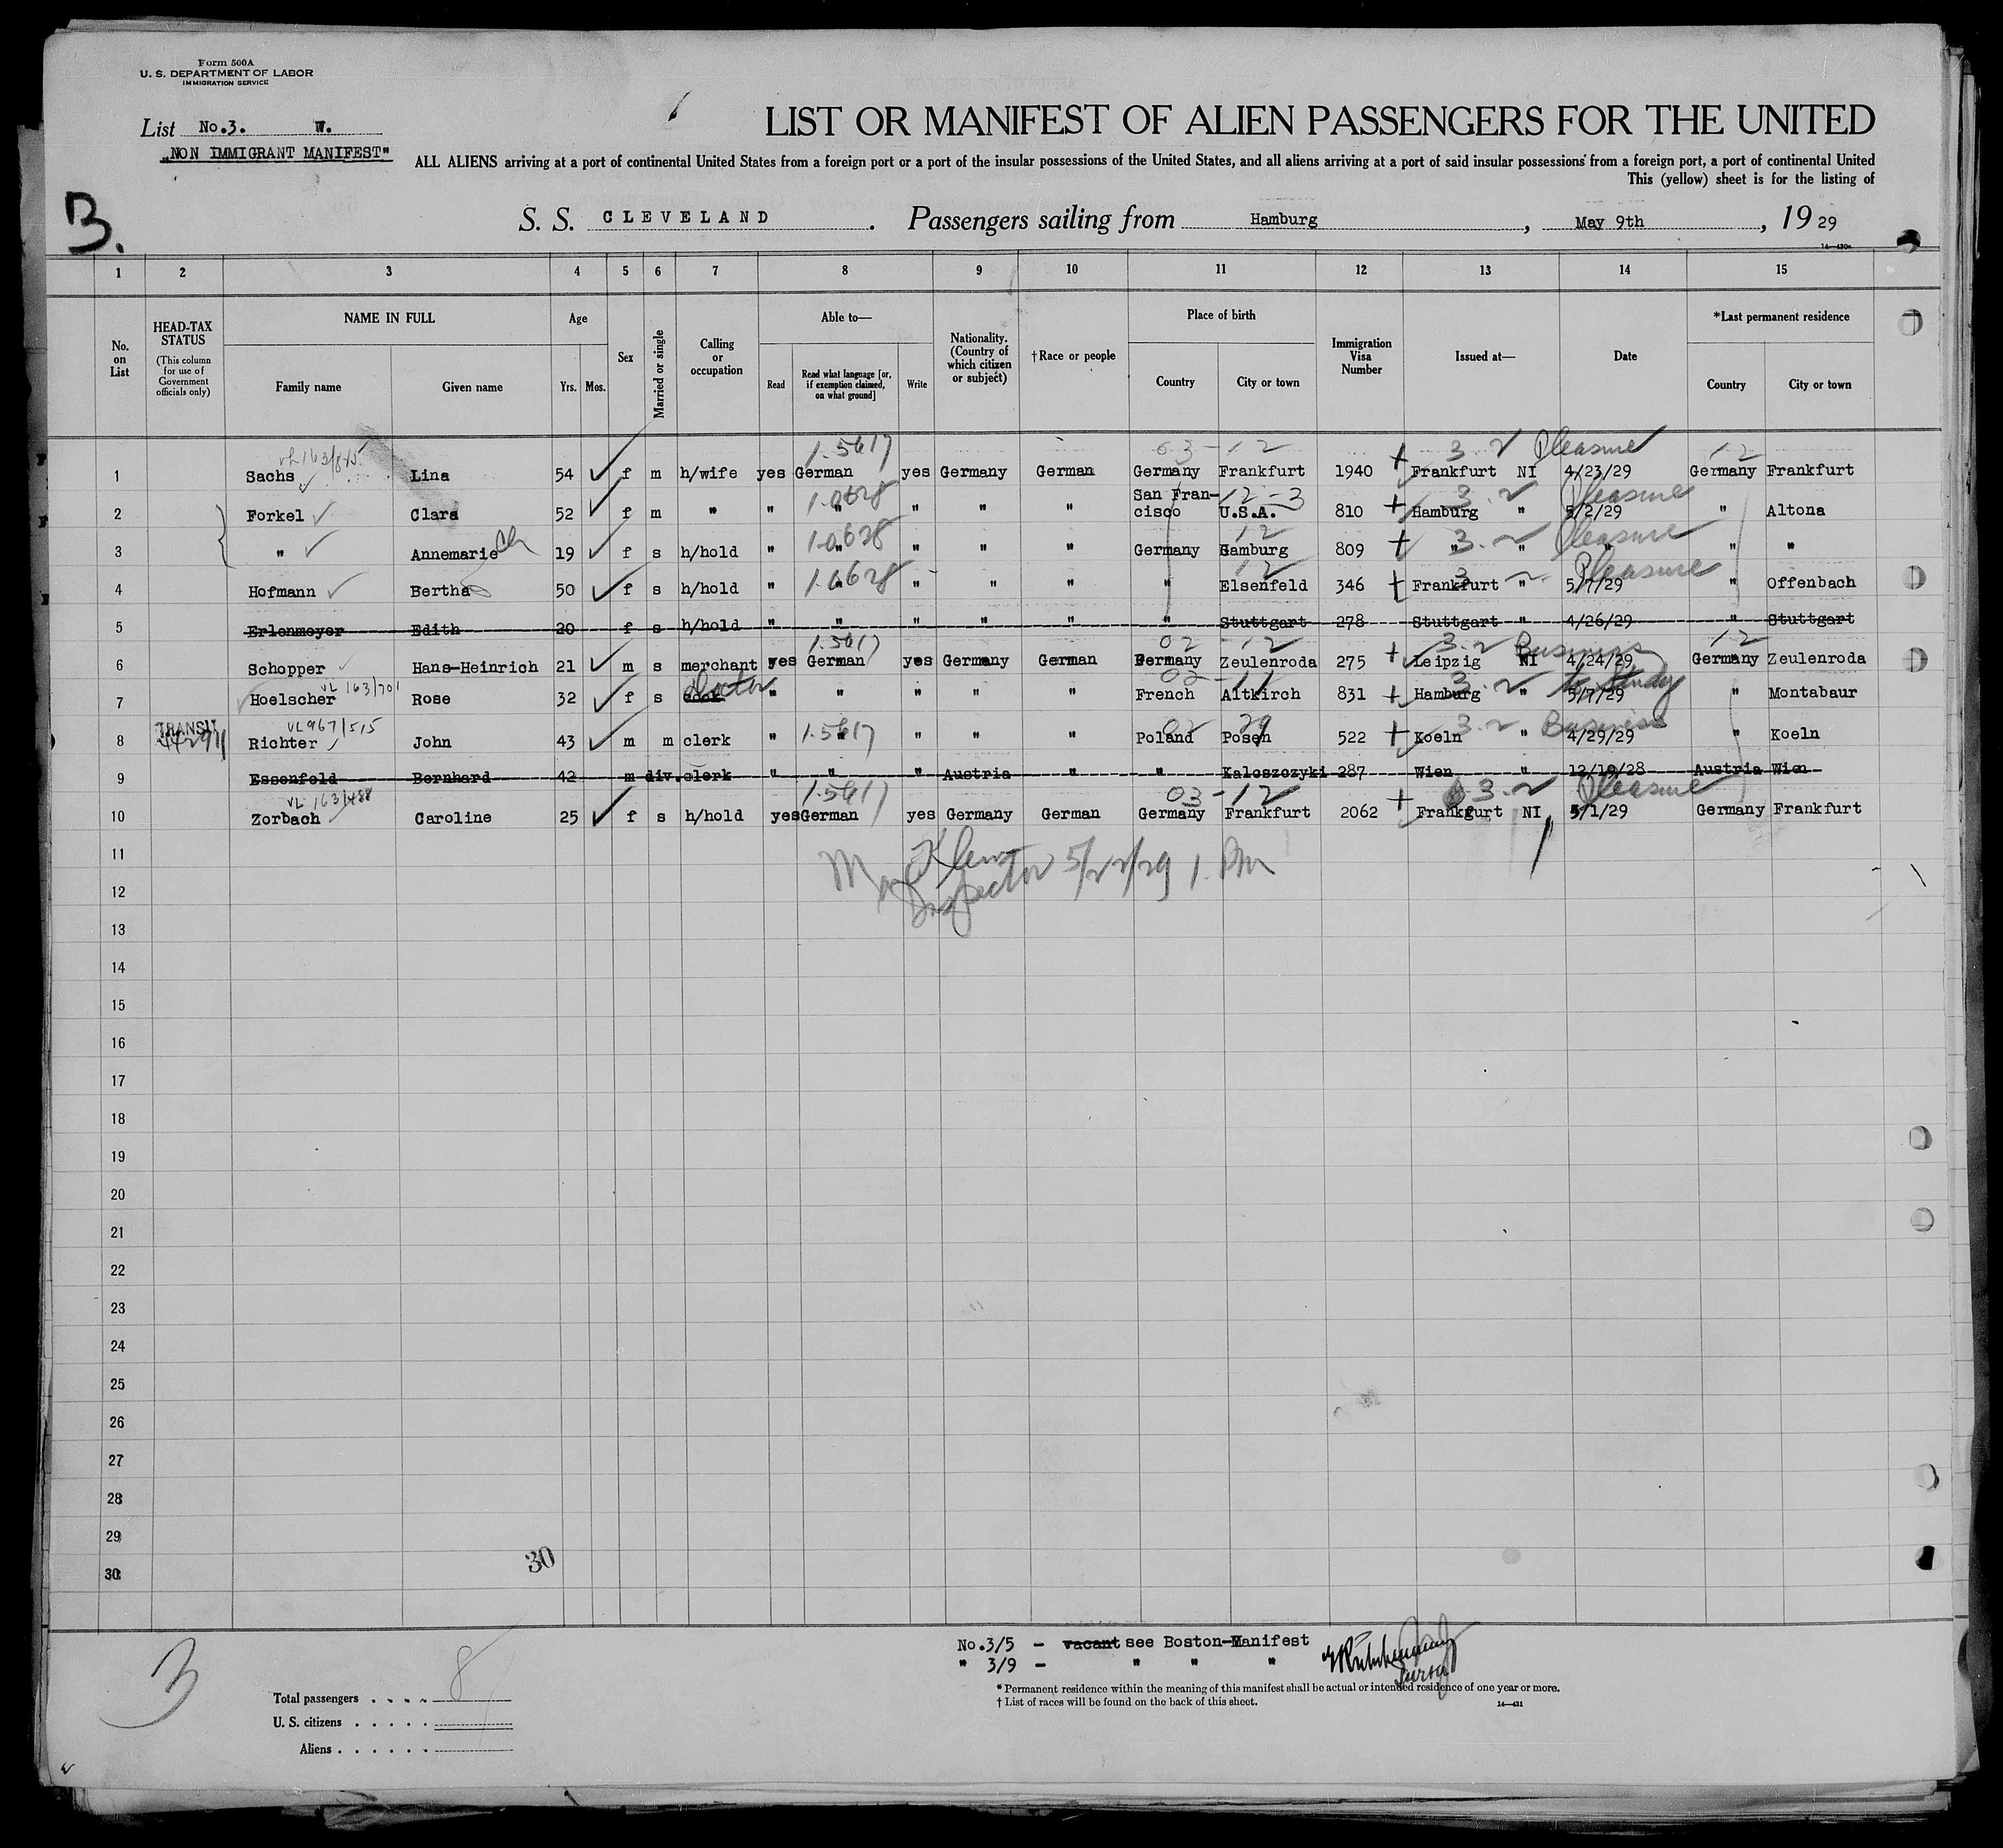 Form 500A
U. S. DEPARTMENT OF LABOR
IMMIGRATION SERVICE
List No.3. W.
„NON IMMIGRANT MANIFEST"
B.
LIST OR MANIFEST OF ALIEN PASSENGERS FOR THE UNITED
ALL ALIENS arriving at a port of continental United States from a foreign port or a port of the insular possessions of the United States, and all aliens arriving at a port of said insular possessions from a foreign port, a port of continental United
This (yellow) sheet is for the listing of
S. S. CLEVELAND . Passengers sailing from Hamburg , May 9th , 19 29
1 2 3 4 5 6 7 8 9 10 11 12 13 14 15
No. on List
HEAD-TAX STATUS
(This column for use of Government officials only)
NAME IN FULL
Family name Given name
Age
Yrs. Mos.
Sex
Married or single
Calling or occupation
Able to—
Read
Read what language [or, if exemption claimed, on what ground]
Write
Nationality. (Country of which citizen or subject)
†Race or people
Place of birth
Country City or town
Immigration Visa Number
Issued at—
Date
*Last permanent residence
Country City or town
1.5617 03-12 3.2 Pleasure 12
1 Sachs Lina 54 f m h/wife yes German yes Germany German Germany Frankfurt 1940 Frankfurt NI 4/23/29 Germany Frankfurt
12-3 3.2 Pleasure
2 Forkel Clara 52 f m " " " " " " San Francisco U.S.A. 810 Hamburg " 5/2/29 " Altona
12 3.2 Pleasure
3 " Annemarie 19 f s h/hold " " " " " Germany Hamburg 809 " " " " "
12 3.2 Pleasure
4 Hofmann Bertha 50 f s h/hold " " " " " " Elsenfeld 346 Frankfurt " 5/7/29 " Offenbach
5 Erlenmeyer Edith 20 f s h/hold " " " " " " Stuttgart 278 Stuttgart " 4/26/29 " Stuttgart
1.5617 02-12 3.2 Business 12
6 Schopper Hans-Heinrich 21 m s merchant yes German yes Germany German Germany Zeulenroda 275 Leipzig NI 4/24/29 Germany Zeulenroda
VL 163/701 doctor 02-11 3.2 to Study
7 Hoelscher Rose 32 f s cook " " " " " French Altkirch 831 Hamburg " 5/7/29 " Montabaur
TRANSIT VL967/515 1.5617 02 29 3.2 Business
8 Richter John 43 m m clerk " " " " " Poland Posen 522 Koeln " 4/29/29 " Koeln
9 Essenfeld Bernhard 42 m div. clerk " " " Austria " " Kaloszczyki 287 Wien " 12/19/28 Austria Wien
VL 163/488 1.5617 03-12 3.2 Pleasure
10 Zorbach Caroline 25 f s h/hold yes German yes Germany German Germany Frankfurt 2062 Frankgurt NI 5/1/29 Germany Frankfurt
11
Inspector 5/22/29 1. PM
12
13
14
15
16
17
18
19
20
21
22
23
24
25
26
27
28
29
30
30
No.3/5 - vacant see Boston-Manifest
" 3/9 - " " "
*Permanent residence within the meaning of this manifest shall be actual or intended residence of one year or more.
†List of races will be found on the back of this sheet.
14—431
3
Total passengers . . . . 8
U. S. citizens . . . . .
Aliens . . . . . .